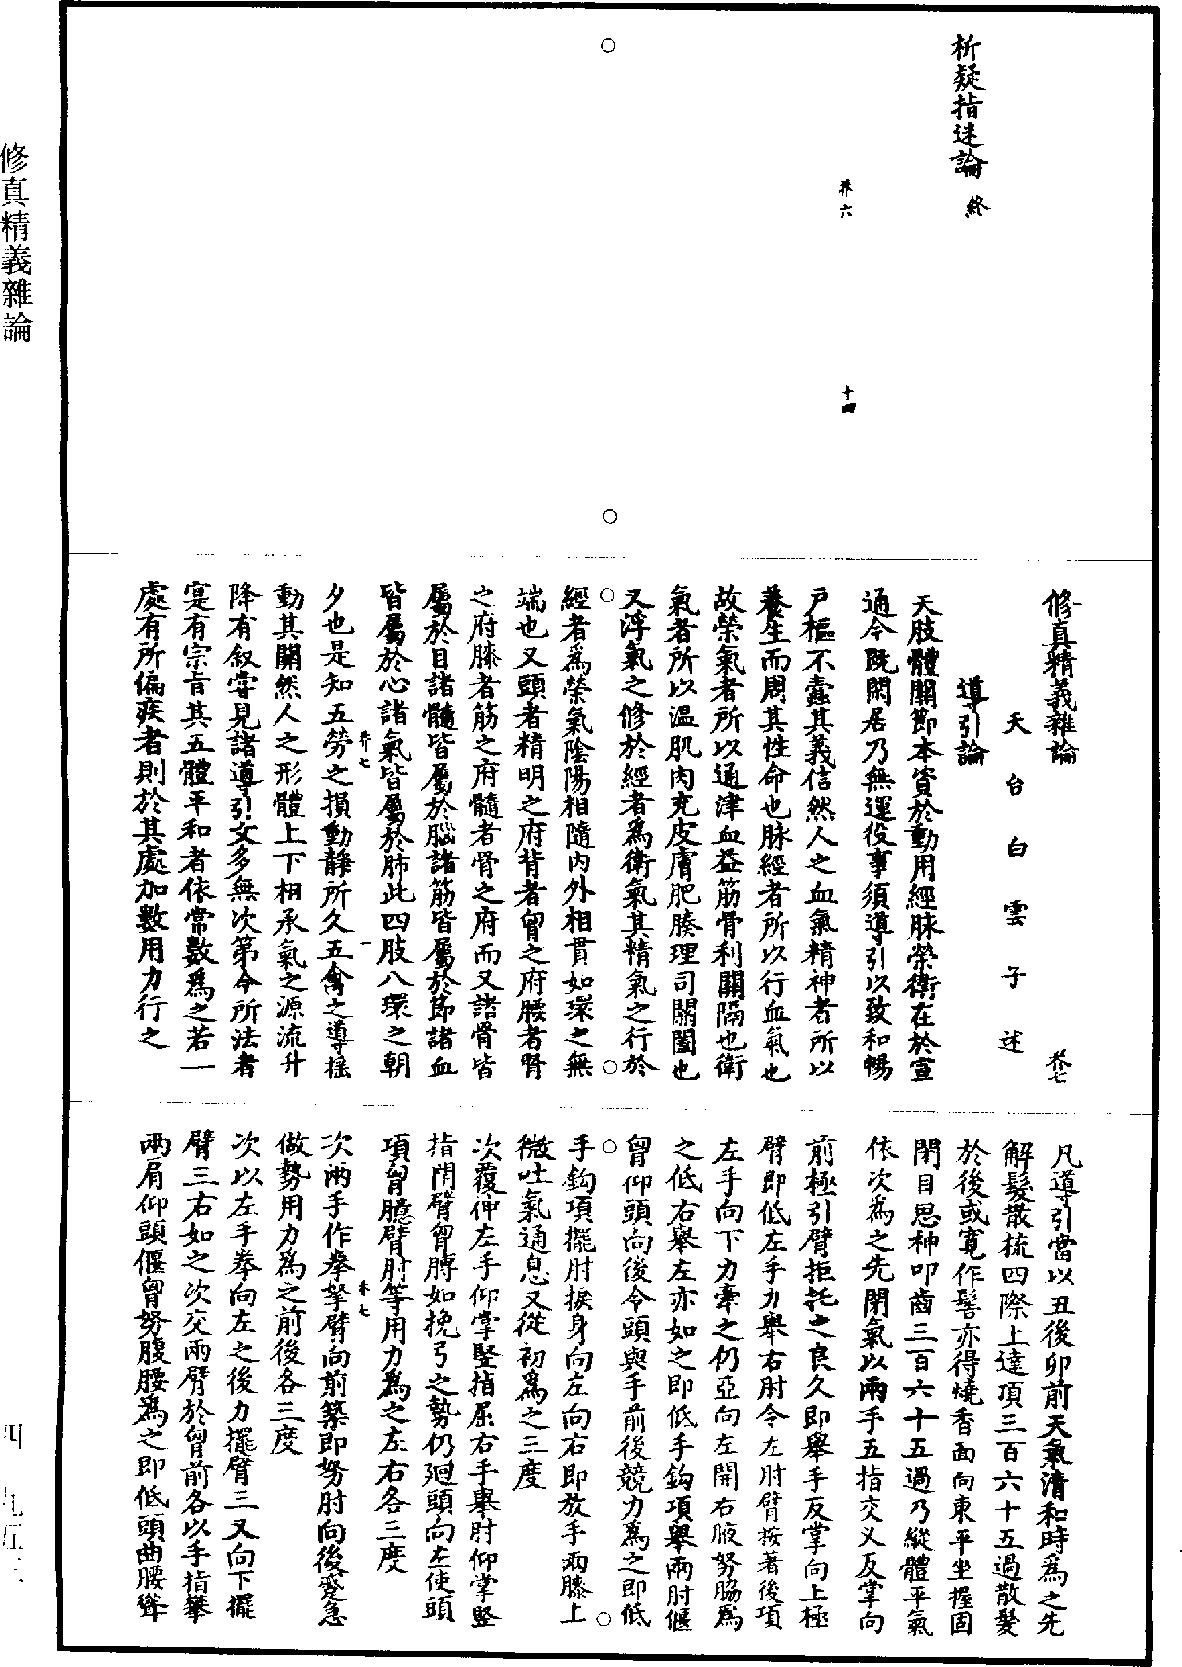 析疑指迷論終
莽六
十四
修真精義雜論
莽七
天台白雲子述
導引論
夫肢體關節本資於動用經脉榮衛在於宣
通今既閑居乃無運役事須導引以致和暢
戶樞不蠹其義信然人之血氣精神者所以
養生而周其性命也脉經者所以行血氣也
故榮氣者所以通津血益筋骨利關隔也衛
氣者所以温肌肉充皮膚肥腠理司關闔也
又浮氣之修於經者為衛氣其精氣之行於
經者爲榮氣陰陽相隨内外相貫如環之無
端也又頭者精明之府背者胷之府腰者腎
之府膝者筋之府髓者骨之府而又諸骨皆
屬於目諸髓皆屬於腦諸筋皆屬於節諸血
皆屬於心諸氣皆屬於肺此四肢八環之朝
莽七
一
夕也是知五勞之損動靜所久五禽之導摇
動其關然人之形體上下相承氣之源流升
降有叙嘗見諸導引文多無次第今所法者
寔有宗旨其五體平和者依常數爲之若一
處有所偏疾者則於其處加數用力行之
凡導引當以丑後卯前天氣清和時爲之先
解髮散梳四際上達項三百六十五過散髮
於後或寬作髻亦得燒香面向東平坐握固
閉目思神叩齒三百六十五過乃縱體平氣
依次為之先閉氣以兩手五指交叉反掌向
前極引臂拒托之良久即舉手反掌向上極
臂即低左手力舉右肘令左肘臂按著後項
左手向下力牽之仍亞向左開右腋努脇爲
之低右舉左亦如之即低手鈎項舉兩肘偃
胷仰頭向後令頭與手前後競力爲之即低
手鈎項擺肘捩身向左向右即放手兩膝上
微吐氣通息又從初為之三度
次覆伸左手仰掌竪指屈右手舉肘仰掌竪
指開臂胷膊如挽弓之勢仍廻頭向左使頭
項胷臆臂肘等用力爲之左右各三度
莽七
次兩手作拳拏臂向前築即努肘向後蹙急
做勢用力爲之前後各三度
次以左手拳向左之後力擺臂三又向下擺
臂三右如之次交兩臂於胷前各以手指攀
兩肩仰頭偃胷努腹腰爲之即低頭曲腰聳
修真精義雜論